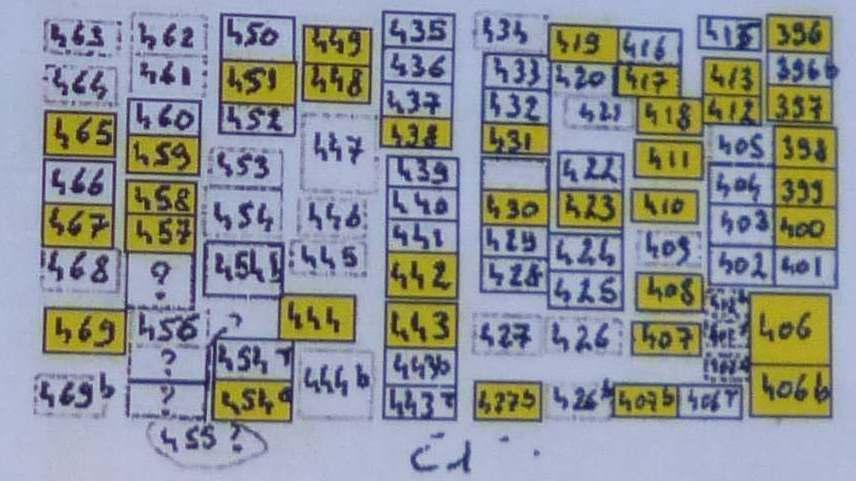 463 462 450 449 435 434 419 416 415 396
464 461 451 448 436 433 420 417 413 396b
465 460 452 447 437 432 421 418 412 397
459 453 438 431 411 405 398
466 458 454 446 439 422 410 404 399
467 457 440 430 423 403 400
468 ? 445 441 429 424 409 402 401
442 428 425 408
469 456 ? 444 443 427 426 407 406
? 454r 444b 443b
469b ? 454a 443r 427b 426b 407b 406r 406b
455?